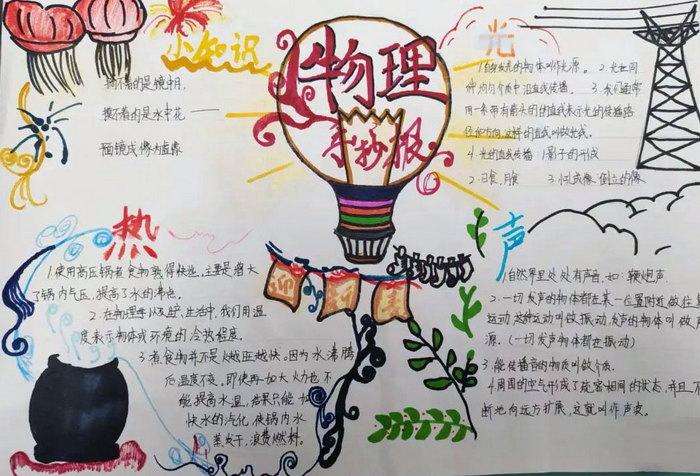 小知识
摘不着的是镜中月,
捞不着的是水中花——
面镜成像为虚像
物理
手抄报
光
1.自身发光的物体叫作光源。 2.光在同
种均匀介质中沿直线传播。 3.我们通常
用一条带有箭头的直线表示光的传播路
径和方向,这样的直线叫做光线。
4.光的直线传播 1.影子的形成
2.日食,月食 3.小孔成像 倒立的像
热
1.使用高压锅煮食物熟得快些,主要是增大
了锅内气压,提高了水的沸点。
2.在物理学以及生活中,我们用温
度表示物体或环境的冷热程度。
3.煮食物并不是火越旺越快。因为水沸腾
后温度不变。即使再加大火力也不
能提高水温,结果只能加
快水的汽化,使锅内水
蒸发干,浪费燃料。
迎新春
声
1.自然界里处处有声音,如:鞭炮声
2.一切发声的物体都在某一位置附近做往复
运动,这种运动叫做振动,发声的物体叫做声
源。(一切发声物体都在振动)
3.能传播声音的物质叫做介质。
4.周围的空气形成了疏密相间的状态,并且不
断地向远方扩展,这就叫作声波。